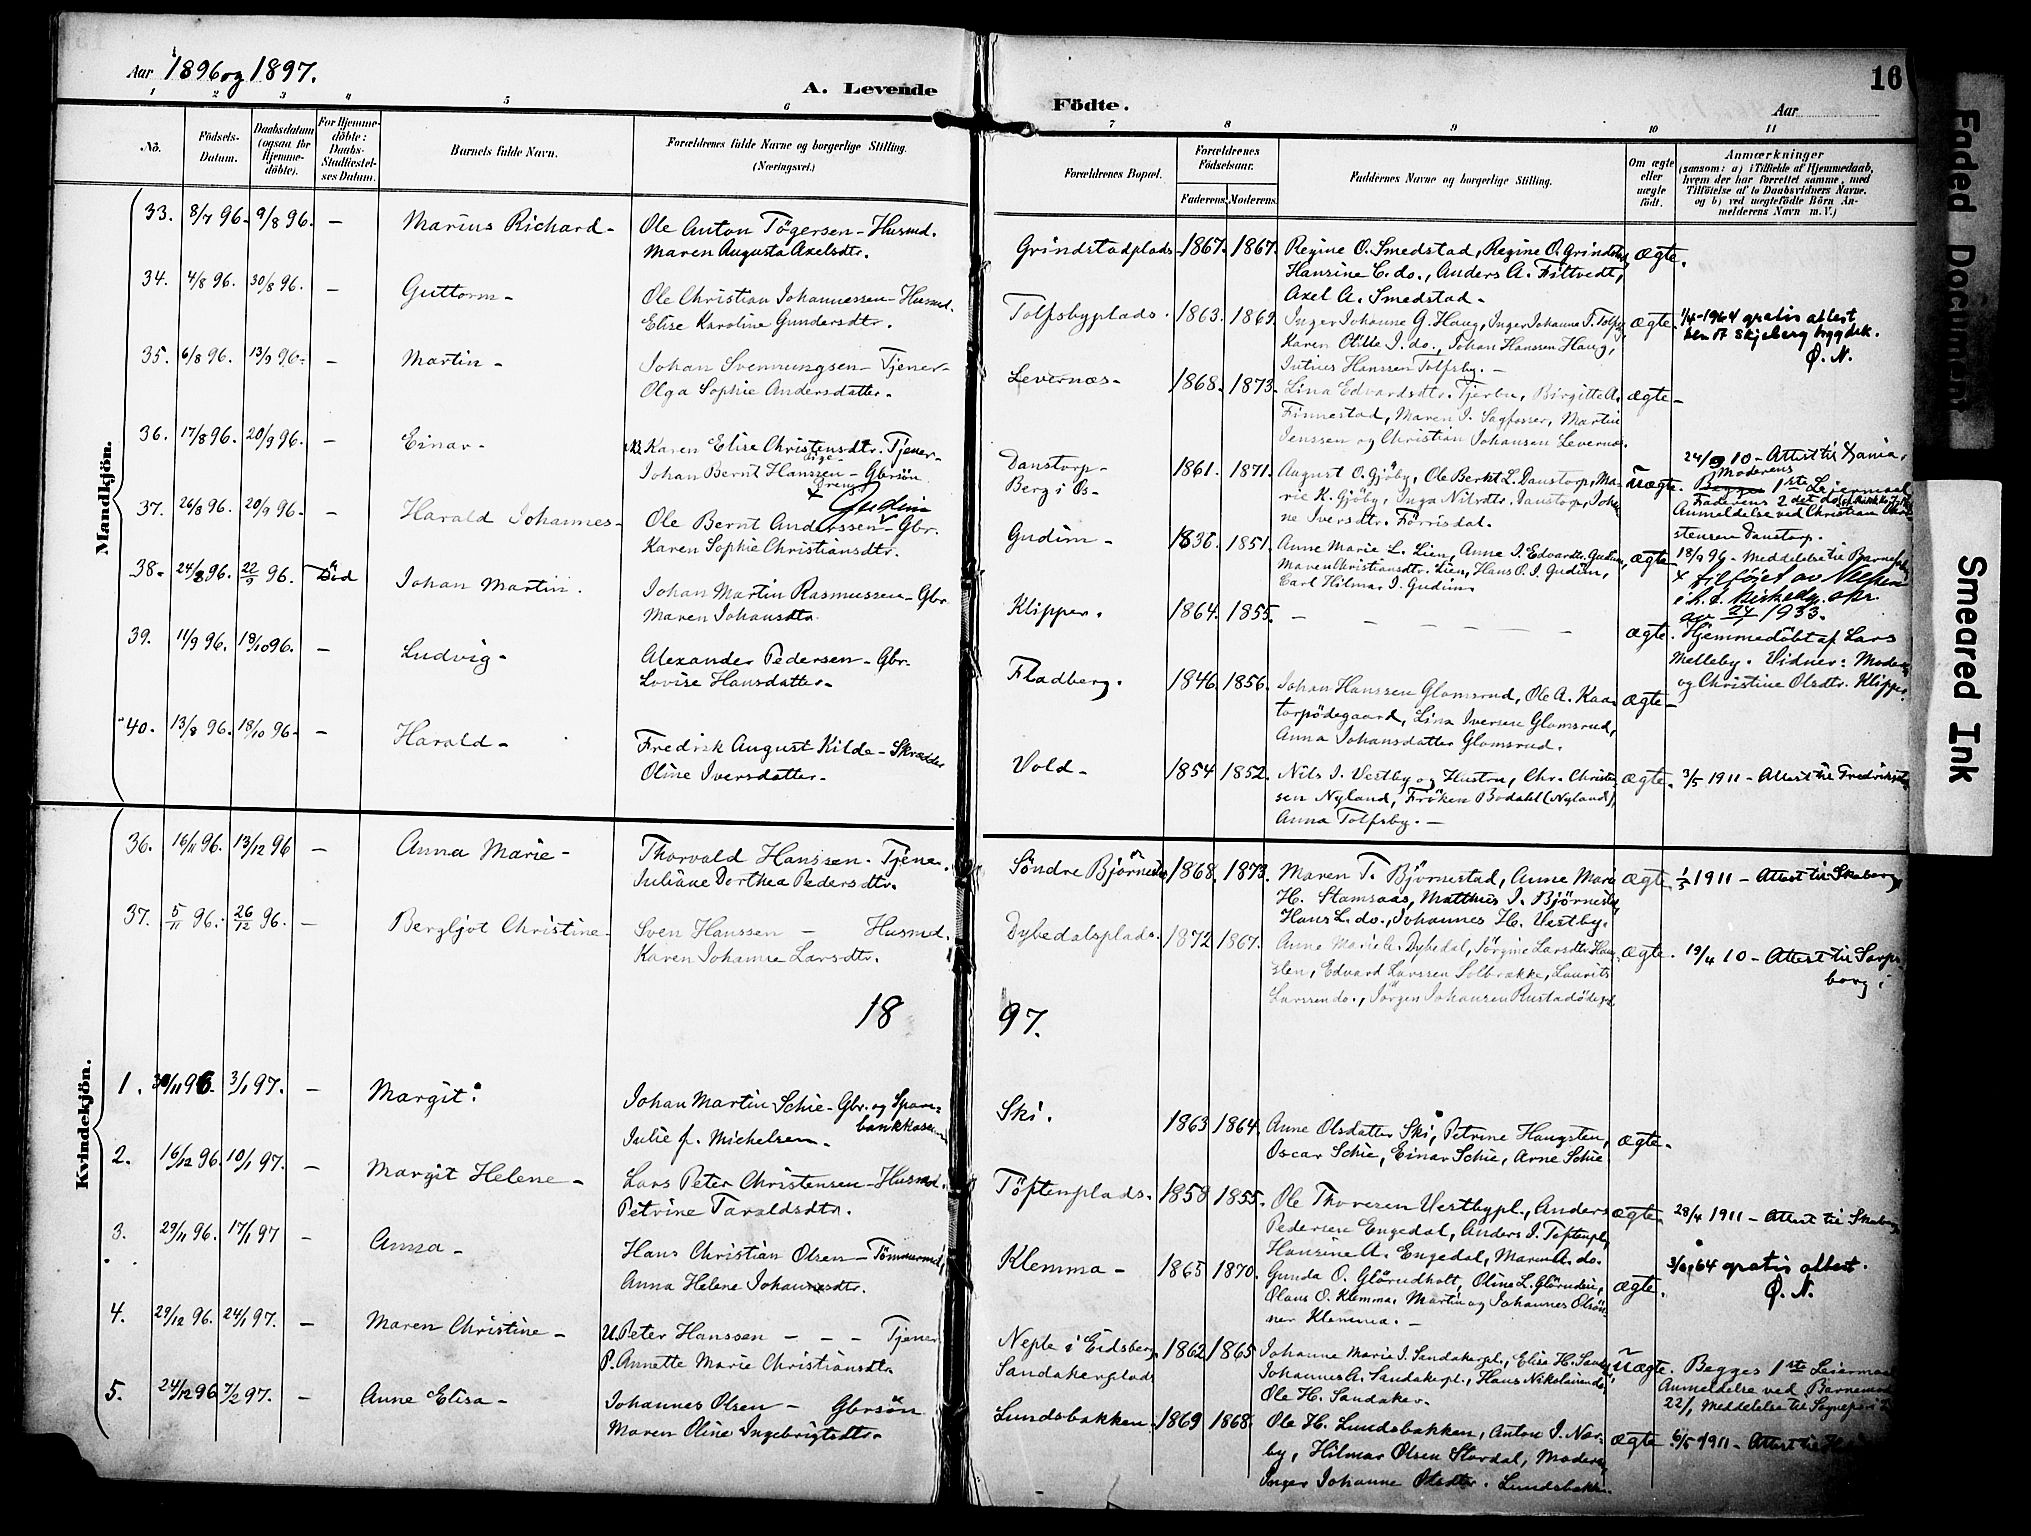 Aar 1896 og 1897.
A. Levende
Födte.
16
Aar
1 2 3 4 5 6 7 8 9 10 11
No. Födsels-Datum. Daabsdatum (ogsaa for Hjemme-döbte). For Hjemme-döbte: Daabs-Stadfæstel-ses Datum. Barnets fulde Navn. Forældrenes fulde Navne og borgerlige Stilling. (Næringsvei.) Forældrenes Bopæl. Forældrenes Födselsaar. Faderens. Moderens. Faddernes Navne og borgerlige Stilling. Om ægte eller uægte födt. Anmærkninger (saasom: a) i Tilfælde af Hjemmedaab, hvem der har forrettet samme, med Tilföielse af to Daabsvidners Navne, og b) ved uægtefödte Börn An-melderens Navn m. V.)
Mandkjön.
33. 8/7 96. 9/8 96. — Marius Richard - Ole Anton Tögersen - Husmd. Grindstadplads 1867. 1867. Regine O. Smedstad, Regine O. Grindstad, ægte.
Maren Augusta Axelsdtr. Hansine C. do., Anders A. Filtvedt,
Axel A. Smedstad -
34. 4/8 96. 30/8 96. — Guttorm - Ole Christian Johannessen - Husmd. Tolfsbyplads. 1863. 1869. Inger Johanne G. Haug, Inger Johanne T. Tolfsby, ægte. 1/4-1964 gratis attest
Elise Karoline Gundersdtr. Karen Otilie I. do., Johan Hanssen Haug, sen. t. Skjeberg trygdek.
Julius Hanssen Tolfsby. - Ø. N.
35. 6/8 96. 13/9 96. — Martin - Johan Svennungsen - Tjener - Levernæs - 1868. 1873. Lina Edvardsdtr. Tjerbu, Birgitte A. ægte -
Olga Sophie Andersdatter. Finnestad, Maren I. Sagfosser, Martin
Jenssen og Christian Johansen Levernæs.
36. 17/8 96. 20/9 96. — Einar - Karen Elise Christensdtr. Tjener - Danstorp - 1861. 1871. August O. Gjöby, Ole Bernt L. Danstorp, Ma- uægte. 24/9 10 - Attest til Xania.
Johan Bernt Hanssen - Gbrsön Berg i Os - rie K. Gjöby, Inga Nilsdtr. Danstorp, Johan- Moderens 1ste Lejermaal
ne Iversdtr. Förrisdal. Faderens 2det
Anmeldelse ved Christian Chri-
stensen Danstorp.
37. 26/8 96. 20/9 96. — Harald Johannes - Ole Bernt Anderssen - Gbr. x Gudim Gudim - 1836. 1851. Anne Marie L. Lien, Anne I. Edvardtr. Gudim, ægte - 18/9 96 - Meddelelse til
Karen Sophie Christiansdtr. Maren Christiansdtr. Lien, Hans O. I. Gudim, x tilföiet av
Carl Hilmar I. Gudim i h. t. Kirkedp. skr.
av 24/1 1933.
38. 24/8 96. 22/9 96. Död Johan Martin. Johan Martin Rasmussen - Gbr. Klipper. 1864. 1855. — — — — — ægte. Hjemmedöbt af Lars
Maren Johansdtr. Melleby. Vidner: Moderen
og Christine Olsdtr. Klipper.
39. 11/9 96. 18/10 96. — Ludvig - Alexander Pedersen - Gbr. Fladberg. 1846. 1856. Johan Hanssen Glomsrud, Ole A. Kaa- ægte -
Lovise Hansdatter - torpödegaard, Lina Iversen Glomsrud,
Anna Johansdatter Glomsrud.
40. 13/8 96. 18/10 96. — Harald - Fredrik August Kilde - Skrædder Vold - 1854. 1852. Nils I. Vestby og Hustru, Chr. Christen- ægte. 3/5 1911 - Attest til Fredrikstad
Oline Iversdatter - sen Nyland, Fröken Bodahl (Nyland),
Anna Tolfsby. -
Kvindekjön.
36. 16/11 96. 13/12 96 — Anna Marie - Thorvald Hanssen - Tjener. Söndre Björnestad 1868. 1873. Maren T. Björnestad, Anne Marie ægte. 1/5 1911 - Attest til Skeberg
Juliane Dorthea Pedersdtr. H. Stamsaas, Matthis I. Björnestad,
Hans L. do., Johannes H. Vestby.
37. 5/11 96. 26/12 96. — Bergljot Christine - Sven Hanssen - Husmd. Dybedalsplads. 1872 1867. Anne Marie A. Dybedal, Jörgine Larsdtr. Haug- ægte. 19/4 10 - Attest til Sarps-
Karen Johanne Larsdtr. sten, Edvard Larssen Solbrække, Laurits borg.
Larssen do., Jörgen Johansen Rustadödegd
18 97.
1. 30/11 96. 3/1 97. — Margit. Johan Martin Schie - Gbr. og Spare- Ski. 1863 1864. Anne Olsdatter Ski, Petrine Haugsten, ægte -
bankkasserer
Julie f. Michelsen - Oscar Schie, Einar Schie, Arne Schie
2. 16/12 96. 10/1 97. — Margit Helene - Lars Peter Christensen - Husmd. Töftenplads. 1858 1855. Ole Thoresen Vestbypl., Anders ægte. 28/4 1911 - Attest til Skeberg
Petrine Taraldsdtr. Pedersen Engedal, Anders I. Toftenpl.,
Hansine A. Engedal, Maren A. do.
3. 29/11 96. 17/1 97 — Anna - Hans Christian Olsen - Tömmermd. Klemma - 1865 1870. Gunda O. Glörudholt, Oline L. Glöruden, ægte. 3/6 64 gratis attest.
Anna Helene Johannesdtr. Olaus O. Klemma, Martin og Johannes Olsön- Ø. N.
ner Klemma. -
4. 29/12 96. 24/1 97. — Maren Christine - U. Peter Hanssen - - - Tjener Neple i Eidsberg 1862 1865 Johanne Marie I. Sandakerpl., Elise H. Sandaker, uægte. Begges 1ste Leiermaal
P. Annette Marie Christiansdtr. Sandakerplads Johannes A. Sandakerpl., Hans Nikolaisen do., Anmeldelse ved Barnemod.
Ole H. Sandaker. 22/1 Meddelelse til Sognepr. i
5. 24/12 96 7/2 97. — Anne Elisa - Johannes Olsen - Gbrsön Lundsbakken. 1869 1868. Ole H. Lundsbakken, Anton I. Nor- ægte. 6/5 1911 - Attest til
Maren Oline Ingebrigtsdtr. by, Hilmar Olsen Stordal, Moderen,
Inger Johanne Olsdtr. Lundsbakken
Faded Document
Smeared Ink